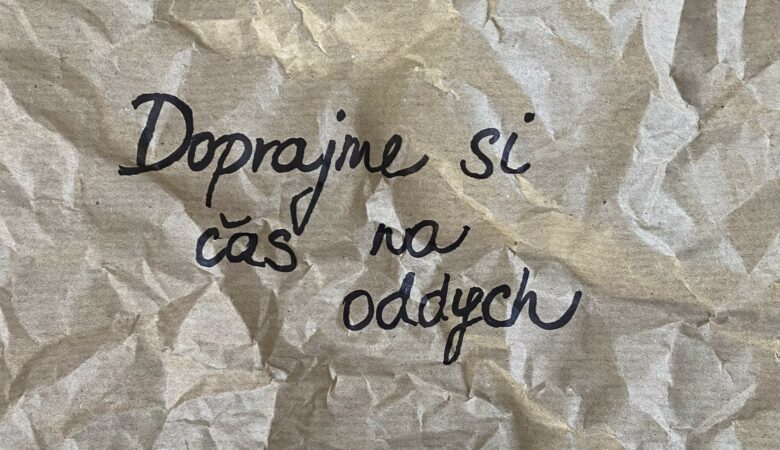 Doprajme si
čas na
oddych